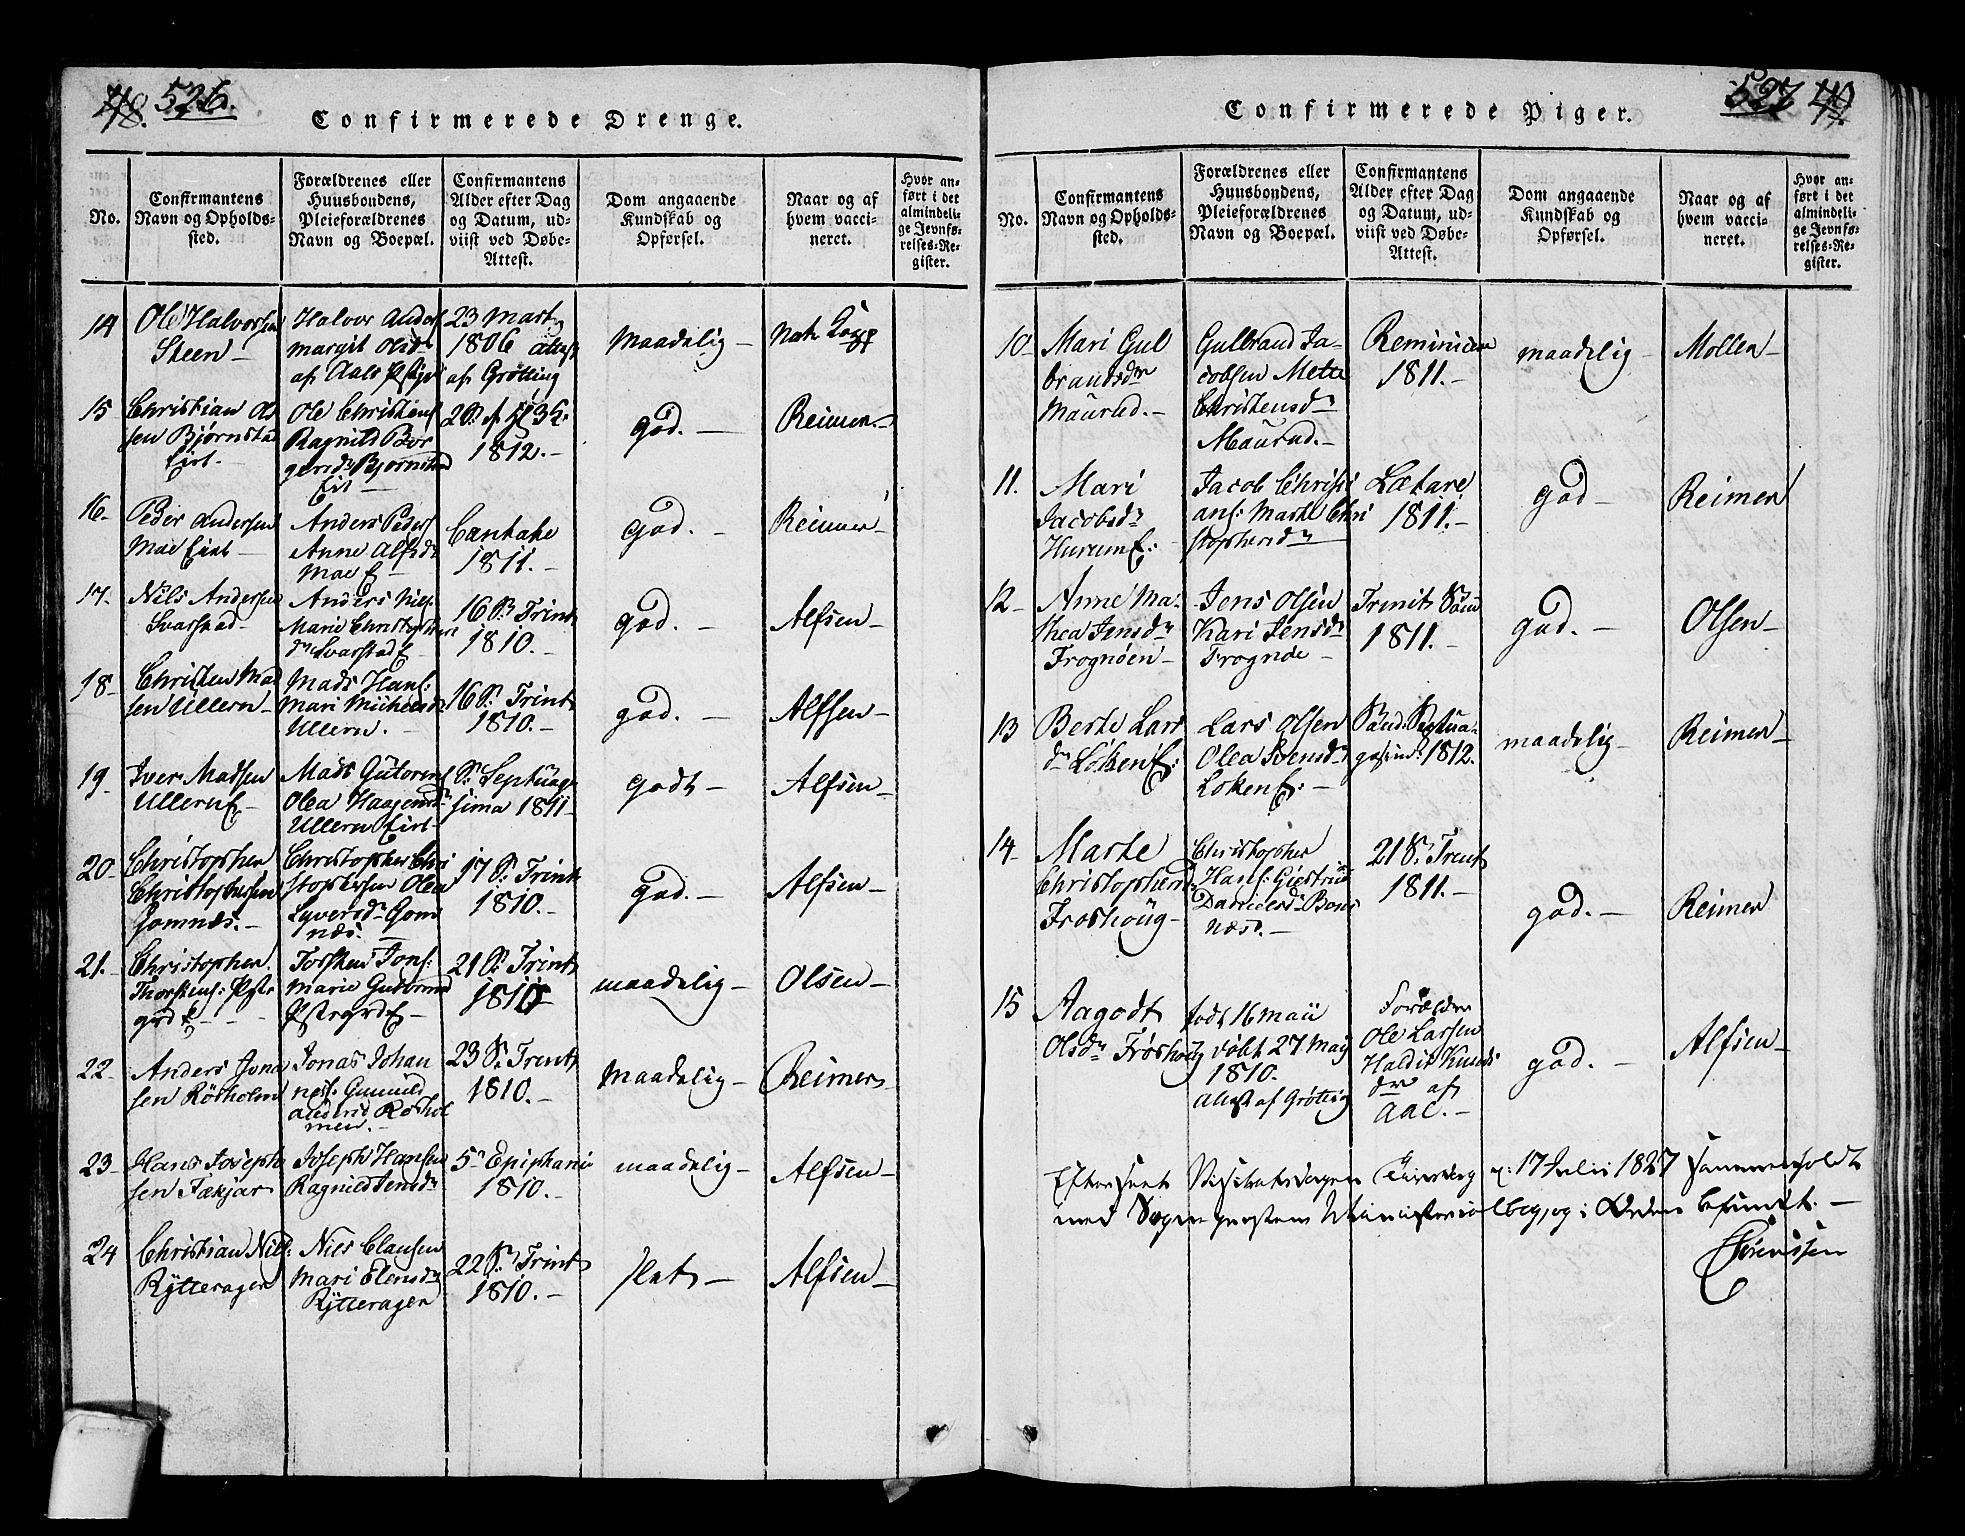 48. 526.
Confirmerede Drenge.
No.
Confirmantens
Navn og Opholds-
sted.
Forældrenes eller
Huusbondens,
Pleieforældrenes
Navn og Boepæl.
Confirmantens
Alder efter Dag
og Datum, ud-
viist ved Døbe-
Attest.
Dom angaaende
Kundskab og
Opførsel.
Naar og af
hvem vacci-
neret.
Hvor an-
ført i det
almindeli-
ge Jevnfø-
relses-Re-
gister.
14
Ole Halvorsen
Steen –
Halvor Anders
Margit Olsdr
af Aals
23 Marty
1806 attest
af Grötting
maadelig –
15
Christian Ol
sen Bjørnstad
Eiet. –
Ole Christens
Ragnild Bør
gersdr Bjørnstad
Eit –
1812. –
god. –
Reimer –
16-
Peder Andersen
Moe Eiet –
Anders Peders
Anne Alfsdr
Moe E –
Cantate
1811. –
god. –
Reimer –
17-
Nils Andersen
Svarstad –
Anders Niels
Marie Christophers
dr Svarstad E –
16 S. Trinit
1810. –
god. –
Alfsen –
18-
Christen Mad
sen Ullern –
Mads Hans:
Mari Michelsdr
Ullern. –
16 S. Trinit
1810. –
god. –
Alfsen –
19-
Iver Madsen
Ullern E –
Mads Gutorms
Olea Haagensdr
Ullern Eiet –
S. Septuage
sima 1811
godt –
Alfsen –
20
Christopher
Christophersen
Gomnæs. –
Christopher Chri
stophersen Olea
Syversdr Gom
næs. –
17 S. Trinit
1810. –
god. –
Alfsen –
21. –
Christopher
Thorstens: Præste
grd E –
Torsten Jons:
Marie Gulbrand
Præstegrd E –
21 S. Trinit
1810
maadelig –
Olsen –
22-
Anders Jona
sen Rösholm
Jonas Johan
nes: Gunnild
Andersd Röshol
men. –
23 S. Trinit
1810. –
maadelig –
Reimer –
23-
Hans Joseph
sen Fækjær
Joseph Hansen
Ragnild Jensdr
5te Epiphani
1810. –
maadelig –
Alfsen –
24
Christian Nils:
Rÿtteragen
Nils Clausen
Mari Elensdr
Rÿtteragen
22 S. Trinit
1810. –
slet –
Alfsen –
Confirmerede Piger.
527 49.
No.
Confirmantens
Navn og Opholds-
sted.
Forældrenes eller
Huusbondens,
Pleieforældrenes
Navn og Boepæl.
Confirmantens
Alder efter Dag
og Datum, ud-
viist ved Døbe-
Attest.
Dom angaaende
Kundskab og
Opførsel.
Naar og af
hvem vacci-
neret.
Hvor an-
ført i det
almindeli-
ge Jevnfø-
relses-Re-
gister.
10-
Mari Gul
brandsdr
Maurud. –
Gulbrand Ja-
cobsen Mette
Christensdr
Maurud. –
Reminicere
1811. –
maadelig –
Mollen –
11.
Mari
Jacobsdr
Hurum E:
Jacob Christi
ans: Marte Chri
stophersdr
Lætare
1811. –
god –
Reimer
12-
Anne Ma-
thea Jensdr
Frognöen –
Jens Olsen
Kari Jensdr
Frognöe –
Trinit Sönd
1811. –
god. –
Olsen –
13
Berte Lars
dr Löken E:
Lars Olsen
Olea Svensdr
Löken E: –
Sönd. Septua-
gesimæ 1812.
maadelig –
Reimer –
14-
Marte
Christophersdr
Froshöug –
Christopher
Hans: Giertrud
Danielsdr Bons
næs. –
21 S. Trinit
1811. –
god. –
Reimer
15
Aagodt
Olsdr Fröshoug
född 16 maii
döbt 27 Maii
1810.
Attest af Grötting
Forælder
Ole Larsen
Haldis Knuds
dr af
Aal. –
god. –
Alfsen –
Efterseet Visitatsdagen Tirsdag d: 17 Julii 1827 sammenholdt
med Sogneprestens Ministerialbog, og i Orden befundet. –
Sörenssen